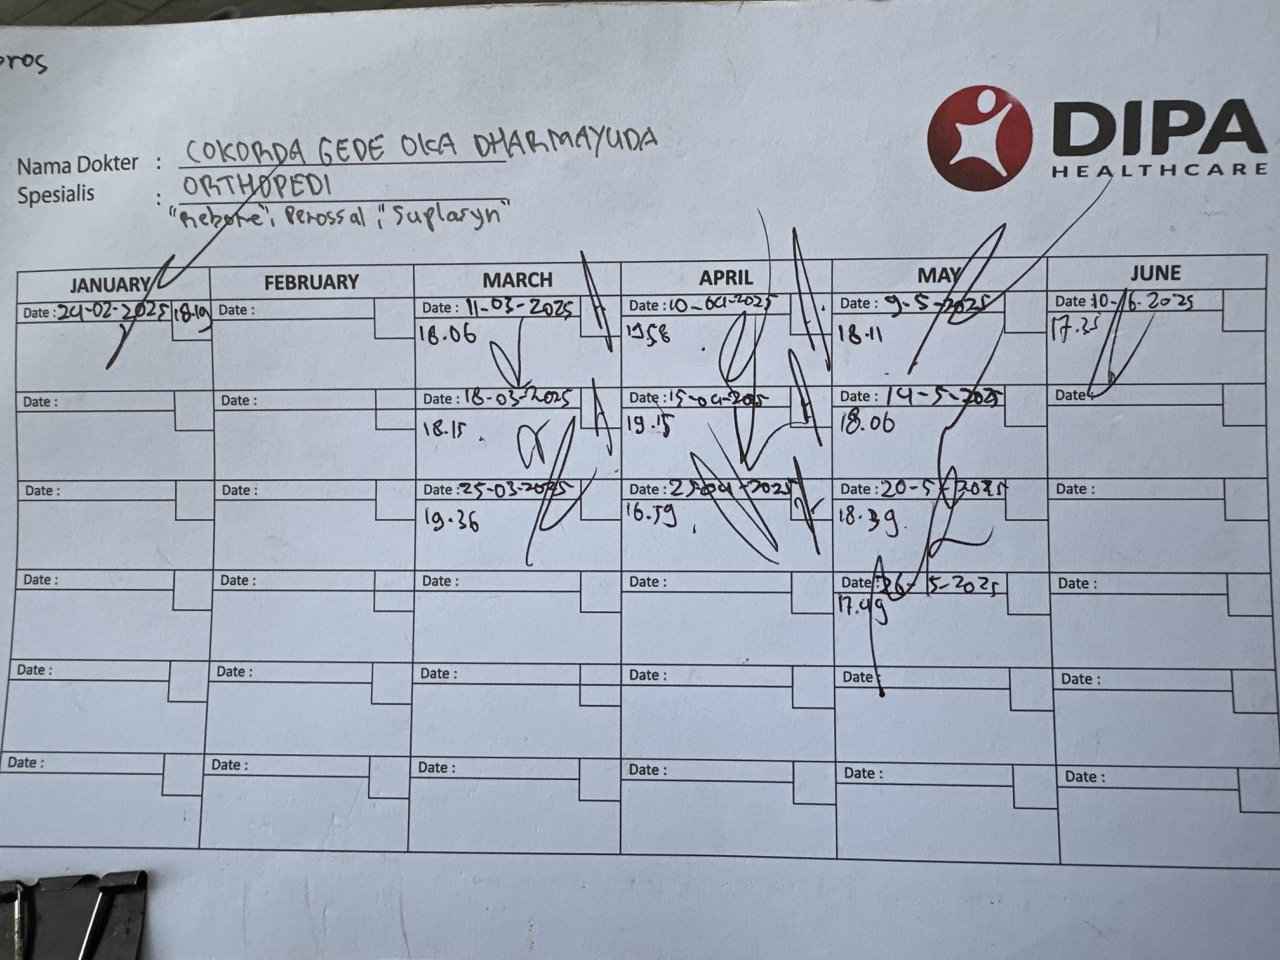 DIPA
HEALTHCARE
Nama Dokter : COKORDA GEDE OKA DHARMAYUDA
Spesialis : ORTHOPEDI
"Rebone", Perossal, "Suplasyn"
JANUARY FEBRUARY MARCH APRIL MAY JUNE
Date : 24-02-2025 18.19 Date : Date : 11-03-2025 Date : 10-04-2025 Date : 9-5-2025 Date : 10-6-2025
18.06 1958 18.11 17.35
Date : Date : Date : 18-03-2025 Date : 15-04-2025 Date : 14-5-2025 Date
18.15 19.15 18.06
Date : Date : Date : 25-03-2025 Date : 25-04-2025 Date : 20-5-2025 Date :
19.36 16.59 18.39
Date : Date : Date : Date : Date : 26-5-2025 Date :
17.49
Date : Date : Date : Date : Date Date :
Date : Date : Date : Date : Date : Date :